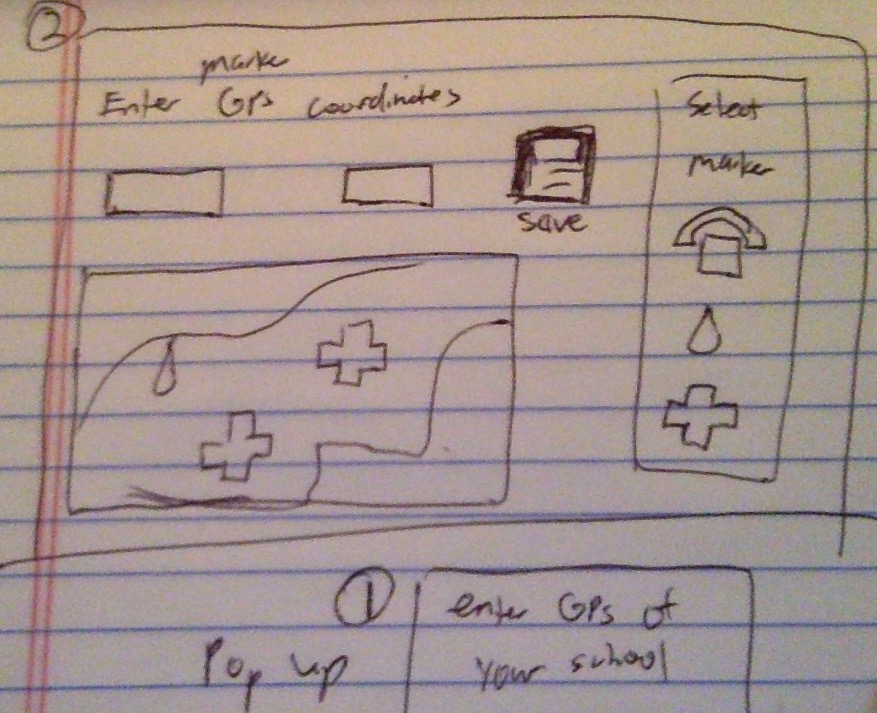 2
marker
Enter GPS coordinates
save
Select
marker
1
Pop up
enter GPS of
your school